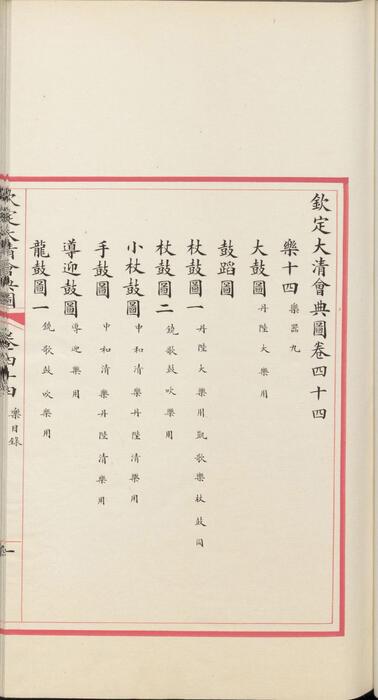 欽定大清會典圖卷四十四
樂十四樂器九
大鼓圖丹陛大樂用
鼓蹈圖
杖鼓圖一丹陛大樂用凱歌樂杖鼓同
杖鼓圖二鐃歌鼓吹樂用
小杖鼓圖中和清樂丹陛清樂用
手鼓圖中和清樂丹陛清樂用
導迎鼓圖導迎樂用
龍鼓圖一鐃歌鼓吹樂用
欽定大清會典圖 卷四十四 樂目錄 一